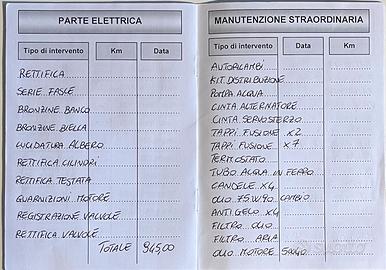 PARTE ELETTRICA
Tipo di intervento Km Data
RETTIFICA
SERIE FASCE
BRONZINE BANCO
BRONZINE BIELLA
LUCIDATURA ALBERO
RETTIFICA CILINDRI
RETTIFICA TESTATA
GUARNIZIONI MOTORE
REGISTRAZIONE VALVOLE
RETTIFICA VALVOLE
TOTALE 945,00
MANUTENZIONE STRAORDINARIA
Tipo di intervento Km Data
AUTORICAMBI
KIT DISTRIBUZIONE
POMPA ACQUA
CINTA ALTERNATORE
CINTA SERVOSTERZO
TAPPI FUSIONE x2
TAPPI FUSIONE x7
TERMOSTATO
TUBO ACQUA IN FERRO
CANDELE x4
OLIO 75W90 CAMBIO
ANTIGELO x4
FILTRO OLIO
FILTRO ARIA
OLIO MOTORE 5W40